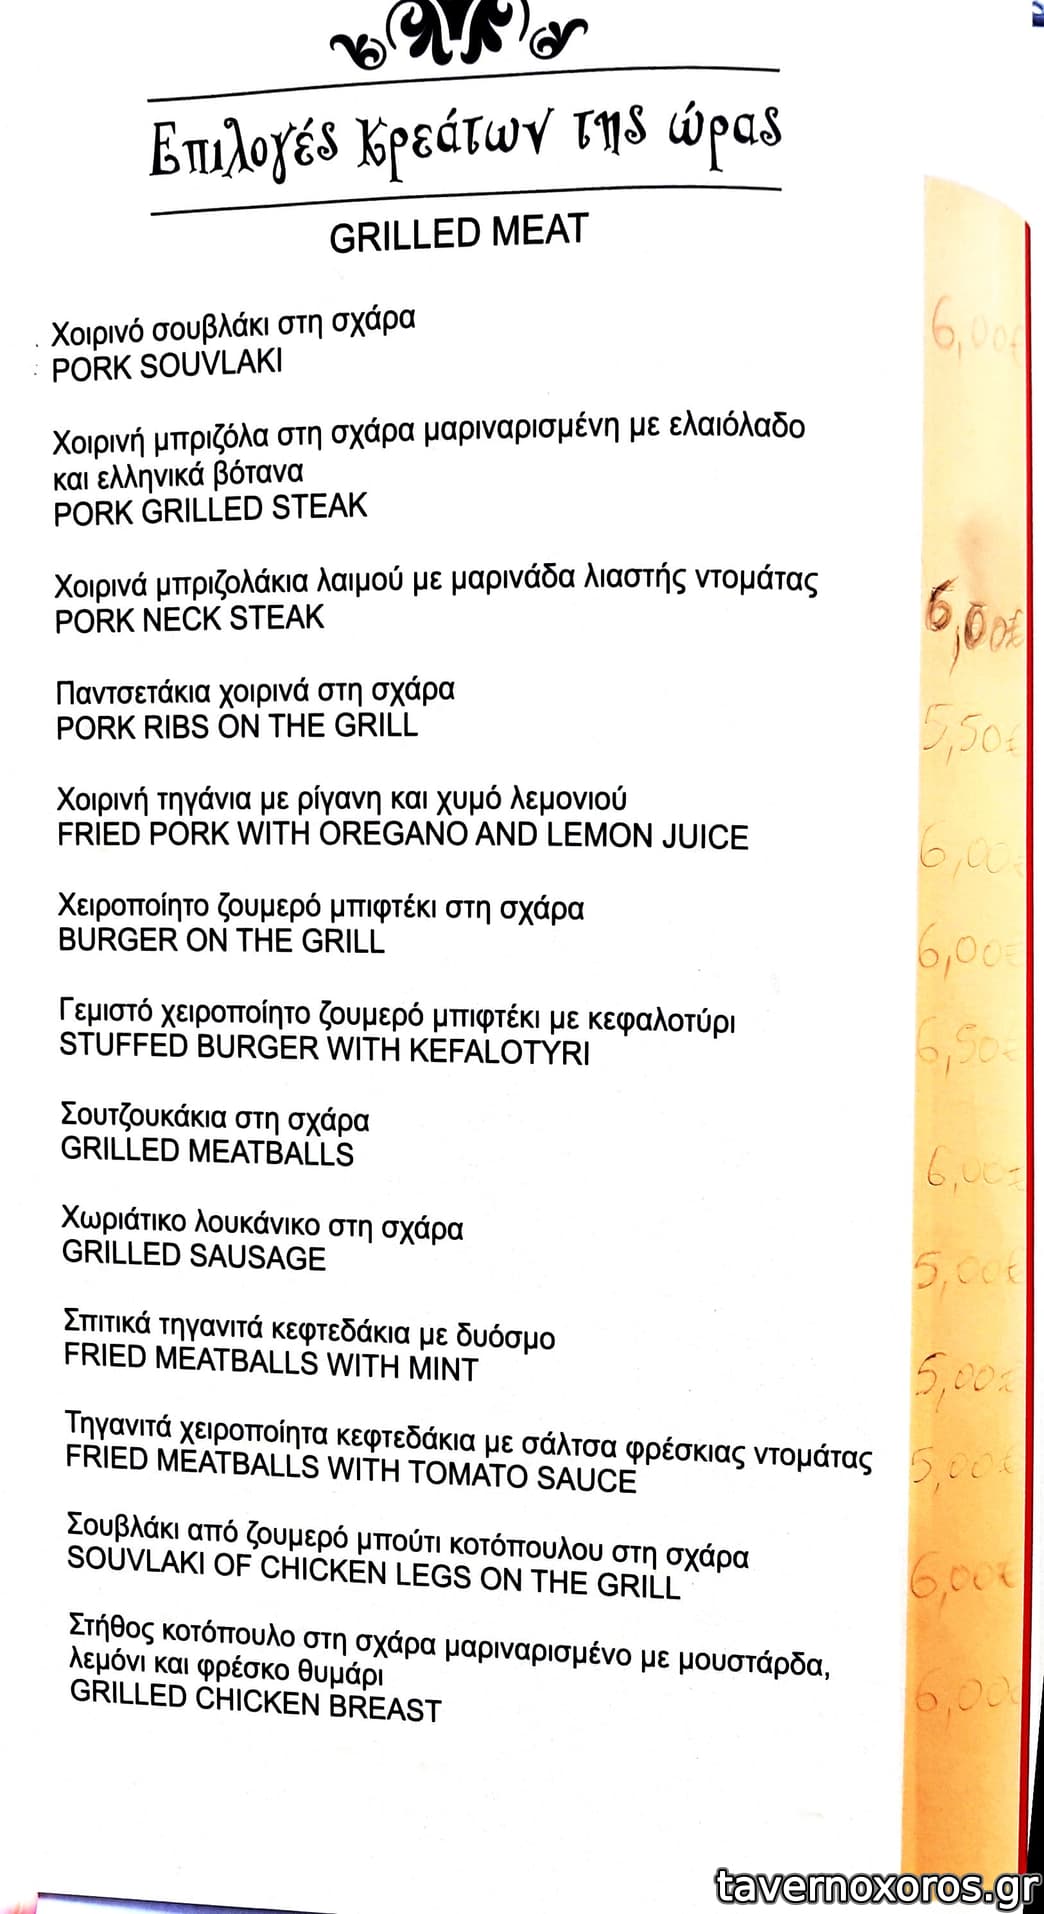 Επιλογές Κρεάτων της ώρας
GRILLED MEAT
Χοιρινό σουβλάκι στη σχάρα
PORK SOUVLAKI
6,00€
Χοιρινή μπριζόλα στη σχάρα μαριναρισμένη με ελαιόλαδο
και ελληνικά βότανα
PORK GRILLED STEAK
Χοιρινά μπριζολάκια λαιμού με μαρινάδα λιαστής ντομάτας
PORK NECK STEAK
6,00€
Παντσετάκια χοιρινά στη σχάρα
PORK RIBS ON THE GRILL
5,50€
Χοιρινή τηγάνια με ρίγανη και χυμό λεμονιού
FRIED PORK WITH OREGANO AND LEMON JUICE
6,00€
Χειροποίητο ζουμερό μπιφτέκι στη σχάρα
BURGER ON THE GRILL
6,00€
Γεμιστό χειροποίητο ζουμερό μπιφτέκι με κεφαλοτύρι
STUFFED BURGER WITH KEFALOTYRI
6,50€
Σουτζουκάκια στη σχάρα
GRILLED MEATBALLS
6,00€
Χωριάτικο λουκάνικο στη σχάρα
GRILLED SAUSAGE
5,00€
Σπιτικά τηγανιτά κεφτεδάκια με δυόσμο
FRIED MEATBALLS WITH MINT
5,00€
Τηγανιτά χειροποίητα κεφτεδάκια με σάλτσα φρέσκιας ντομάτας
FRIED MEATBALLS WITH TOMATO SAUCE
5,00€
Σουβλάκι από ζουμερό μπούτι κοτόπουλου στη σχάρα
SOUVLAKI OF CHICKEN LEGS ON THE GRILL
6,00€
Στήθος κοτόπουλο στη σχάρα μαριναρισμένο με μουστάρδα,
λεμόνι και φρέσκο θυμάρι
GRILLED CHICKEN BREAST
6,00€
tavernoxoros.gr